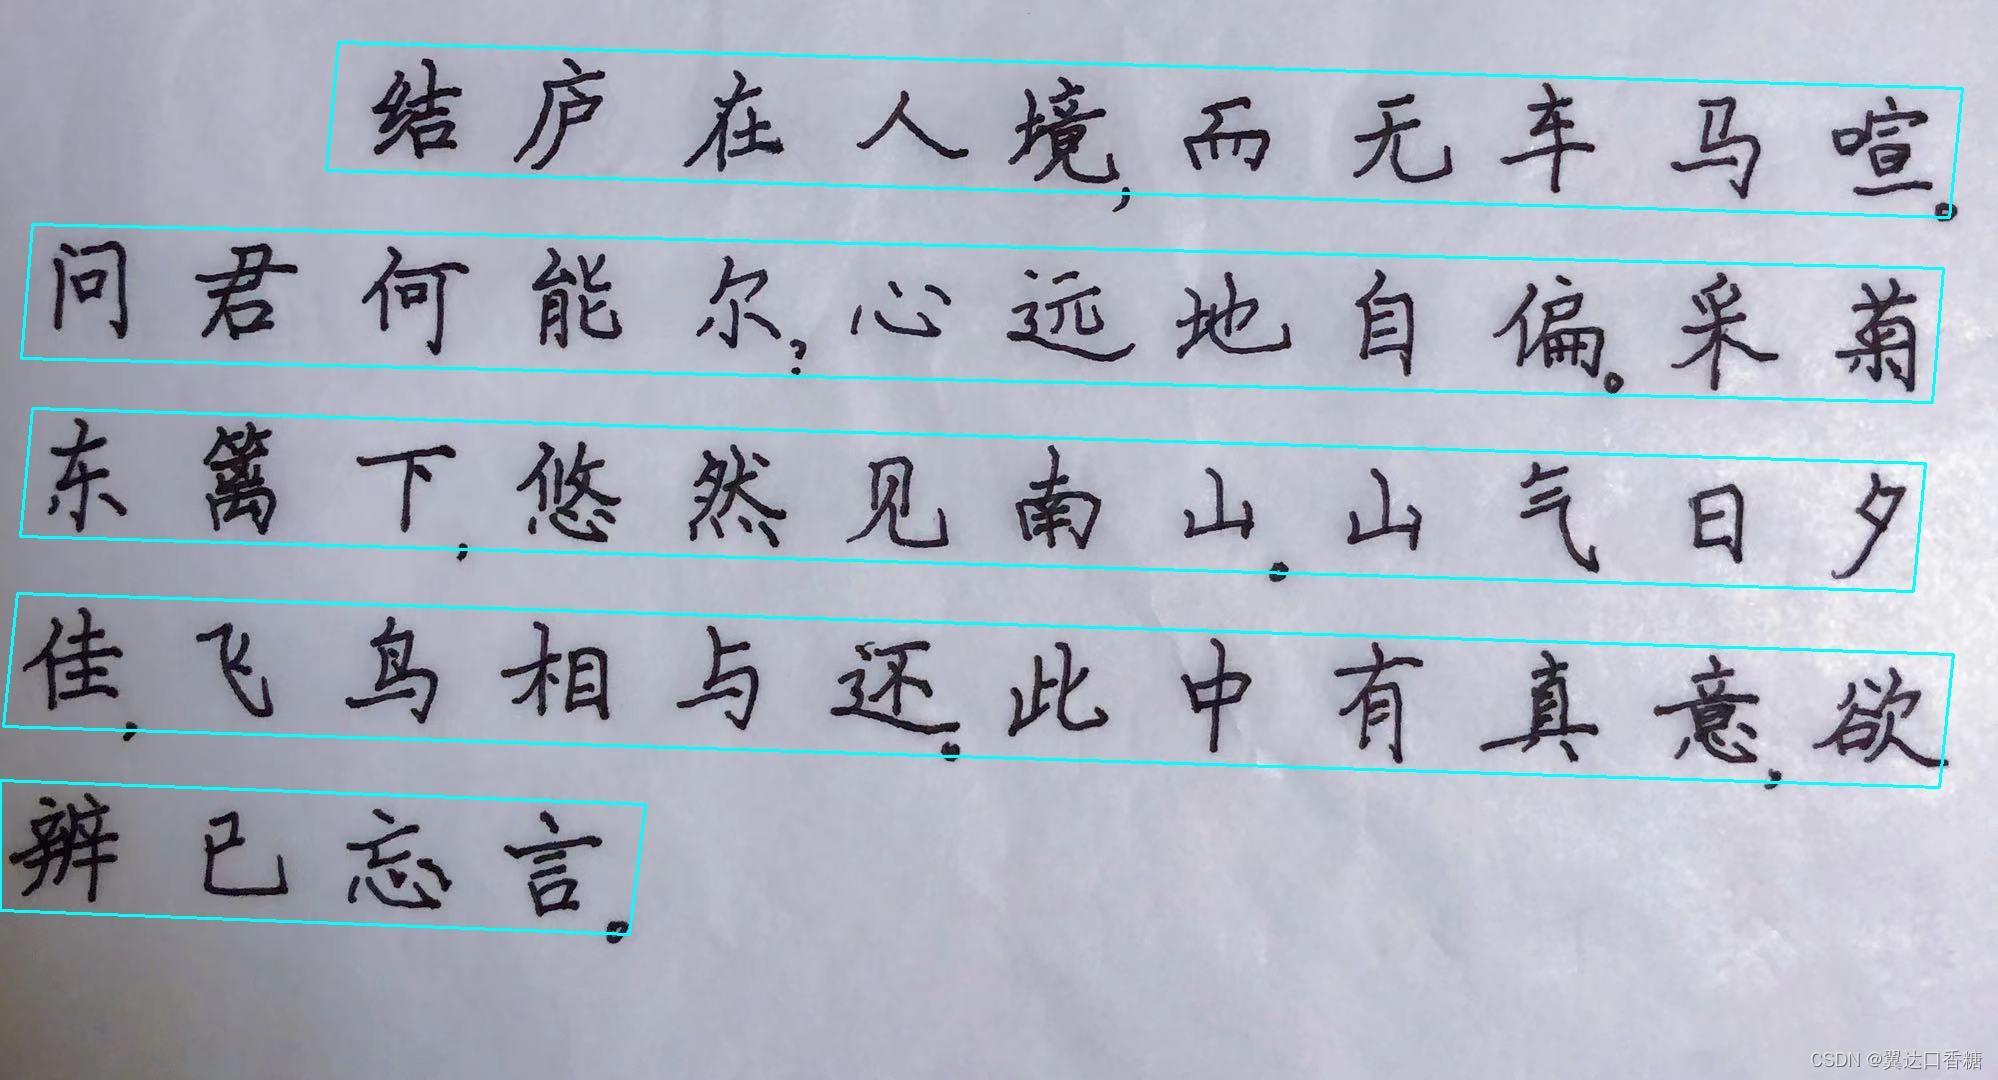 结庐在人境,而无车马喧。
问君何能尔?心远地自偏。采菊
东篱下,悠然见南山。山气日夕
佳,飞鸟相与还。此中有真意,欲
辨已忘言。
CSDN @翼达口香糖